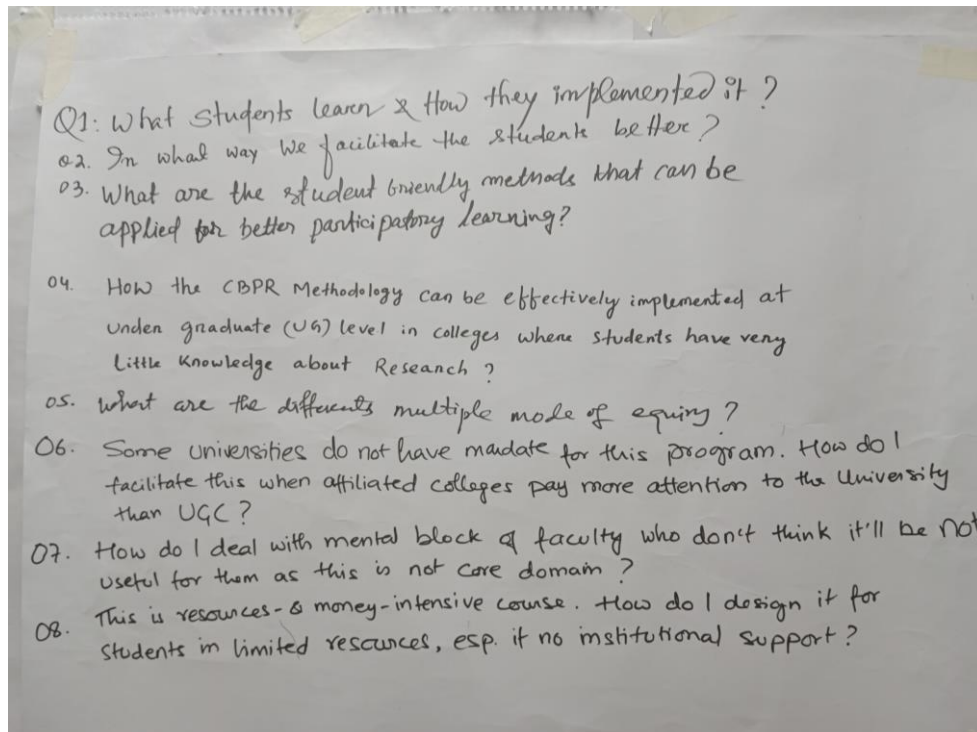 Q1: What Students learn & How they implemented it ?
02. In what way We facilitate the students better ?
03. What are the student friendly methods that can be
applied for better participatory learning?
04. How the CBPR Methodology can be effectively implemented at
Under graduate (UG) level in colleges where students have very
little Knowledge about Research ?
05. What are the differents multiple mode of equiry ?
06. Some universities do not have mandate for this program. How do I
facilitate this when affiliated colleges pay more attention to the University
than UGC ?
07. How do I deal with mental block of faculty who don't think it'll be not
useful for them as this is not core domain ?
08. This is resources- & money-intensive course. How do I design it for
students in limited resources, esp. if no institutional support ?